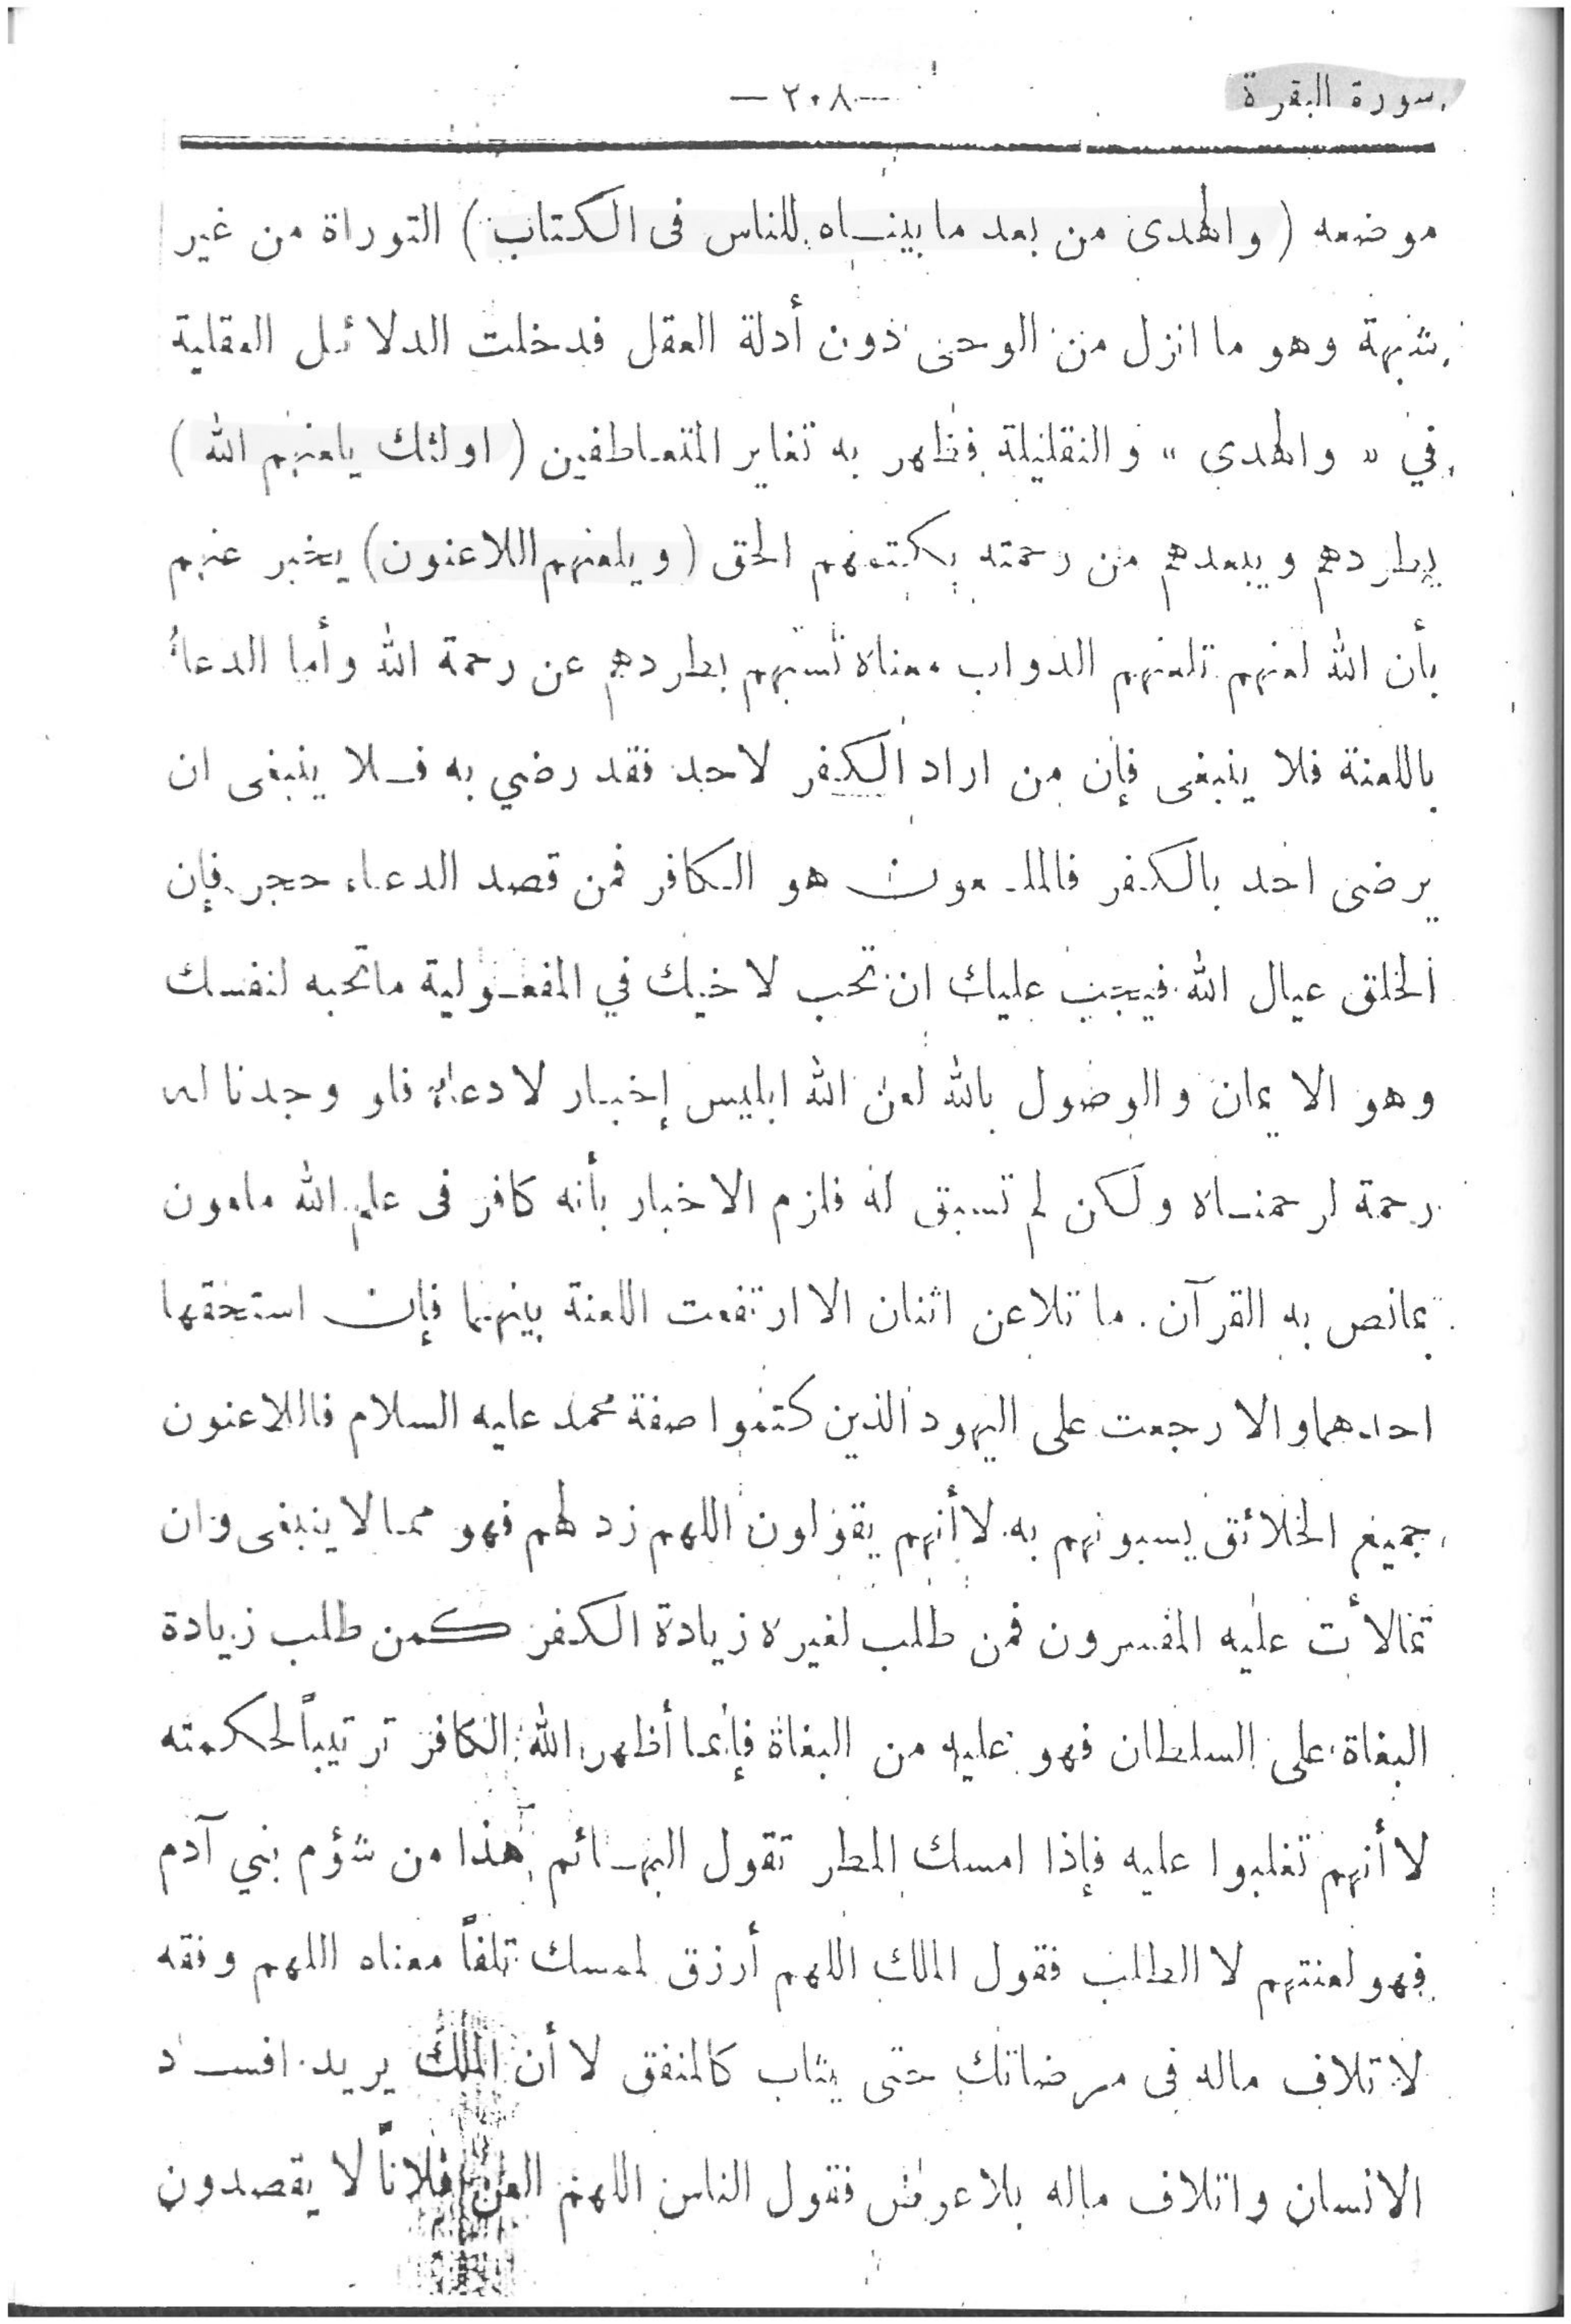 سورة البقرة
— ٢٠٨ —
موضعه ( والهدى من بعد ما بينـاه للناس فى الكتاب ) التوراة من غير
شبهة وهو ما انزل من الوحى دون أدلة العقل فدخلت الدلائل العقلية
في « والهدى » والنقلية فظهر به تغاير المتعاطفين ( اولئك يلعنهم الله )
يطردهم ويبعدهم من رحمته بكتمهم الحق ( ويلعنهم اللاعنون ) يخبر عنهم
بأن الله لعنهم تلعنهم الدواب معناه تسبهم بطردهم عن رحمة الله وأما الدعاء
باللعنة فلا ينبغى فإن من اراد الكفر لاحد فقد رضي به فـلا ينبغى ان
يرضى احد بالكفر فالملـعون هو الـكافر فمن قصد الدعاء حجر فإن
الخلق عيال الله فيجب عليك ان تحب لاخيك في المفعـولية ماتحبه لنفسك
وهو الايمان والوصول بالله لعن الله ابليس إخبـار لا دعاء فلو وجدنا له
رحمة لرحمنـاه ولكن لم تسبق له فلزم الاخبار بأنه كافر فى علم الله ملعون
بمانص به القرآن . ما تلاعن اثنان الا ارتفعت اللعنة بينهما فإن استحقها
احدهماوالا رجعت على اليهود الذين كتموا صفة محمد عليه السلام فاللاعنون
جميع الخلائق يسبونهم به لاأنهم يقولون اللهم زد لهم فهو ممالا ينبغى وان
تمالأت عليه المفسرون فمن طلب لغيره زيادة الكفر كمن طلب زيادة
البغاة على السلطان فهو عليه من البغاة فإنما أظهر الله الكافر ترتيباً لحكمته
لا أنهم تغلبوا عليه فإذا امسك المطر تقول البهـائم هذا من شؤم بني آدم
فهو لعنتهم لا الطلب فقول الملك اللهم أرزق لممسك تلفاً معناه اللهم وفقه
لا تلاف ماله فى مرضاتك حتى يثاب كالمنفق لا أن الملك يريد افسـاد
الانسان واتلاف ماله بلاعوض فقول الناس اللهم العن فلاناً لا يقصدون